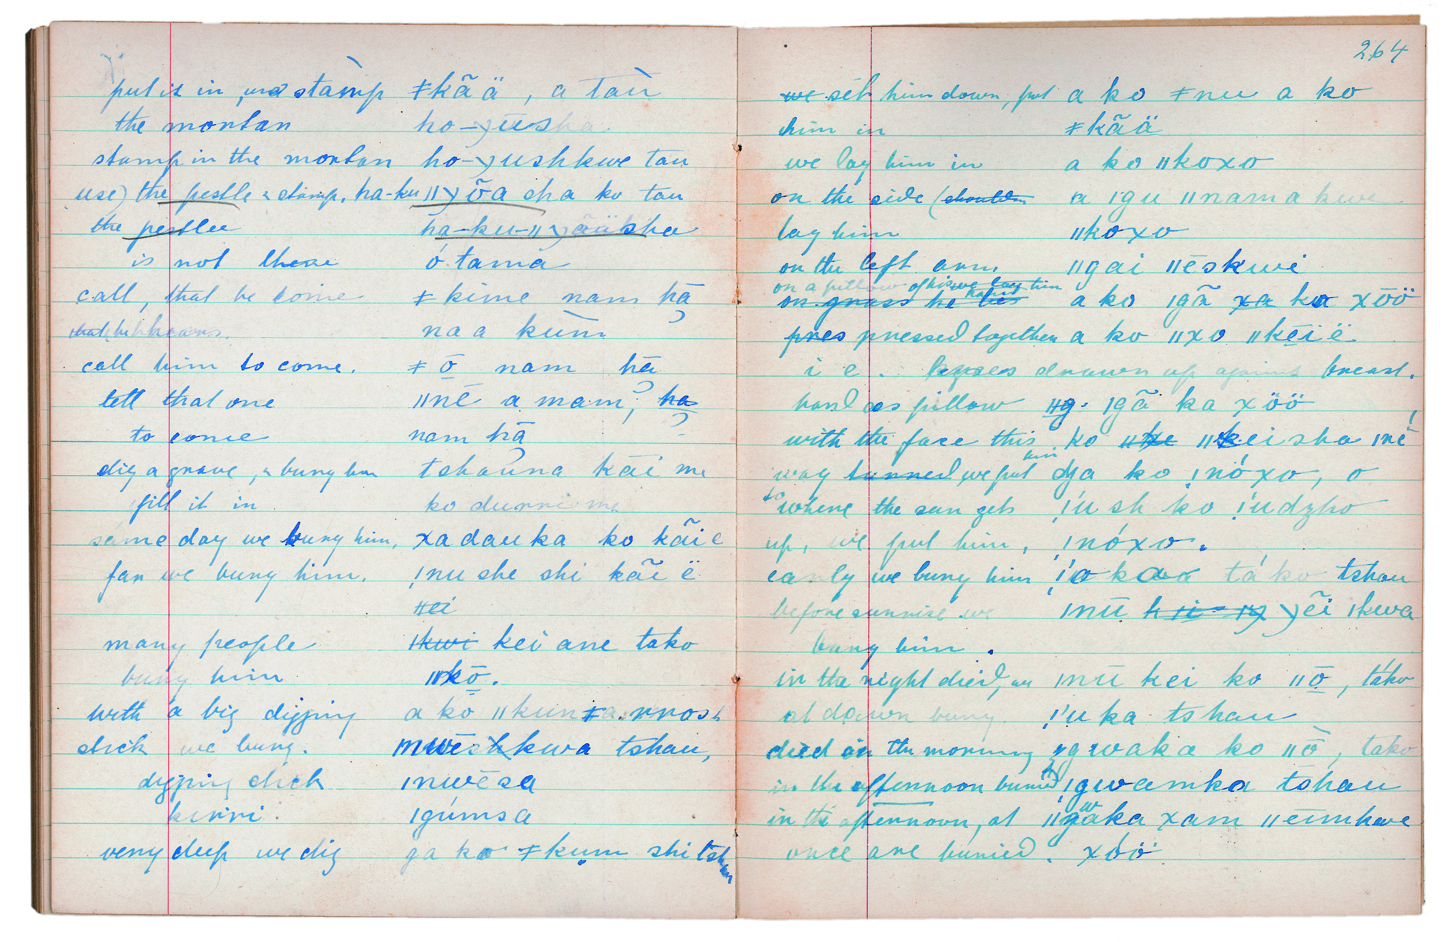 put it in, and stamp ǂkãä, a tau
the mortar ho-
stamp in the mortar ho-yushkwe tau
use) the pestle & stamp, ha-ku ǁyõa sha ko tau
the pestle ha-ku-ǁyõäksha
is not there o tama
call, that he come ǂkime nam hā
na a kum
call him to come. ǂō nam hā
tell that one ǁnē a mam, ha
to come nam hā
dig a grave, & bury him tshauna kāi me
fill it in ko durri me
same day we bury him, xadauka ko kãi e
far we bury him. ǃnu she shi kãi ë
ǂei
many people ǀkwi kei ane tako
bury him ǁkō.
with a big digging a kō ǁkunǂa
stick we bury. kwa tshau,
digging stick ǀnwēsa
kirri ǀgúmsa
very deep we dig ga ko ǂkum shi tshau
264
we set him down, put a ko ǂnu a ko
him in ǂkãä
we lay him in a ko ǁkoxo
on the side (shoulder a ǀgu ǁnama kwe
lay him ǁkoxo
on the left arm ǁgai ǁēskwi
on a pillow of his we lay him
on grass he lies a ko ǀgã xa ka xõö
pres pressed together a ko ǁxo ǁkēi ë
i e. drawn up against breast.
hand as pillow ǁg. ǀgã ka xöö
with the face this ko ǁke ǁkei sha ǀné
way turned we put him ga ko ǃnóxo, o
to where the sun gets ǃ'u sh ko ǃ'udzho
up, we put him, ǃnóxo.
early we bury him ǃ'o kaoa tá ko tshau
before sunrise we ǀnū yẽi ǀkwa
bury him.
in the night died, we ǀnū kei ko ǁō, táko
at dawn bury ǃ'u ka tshau
died in the morning ǃgwaka ko ǁō, tako
in the afternoon buried ǃgwamka tshau
in the afternoon, at ǁgaka xam ǁeimhave
once are buried. xöö